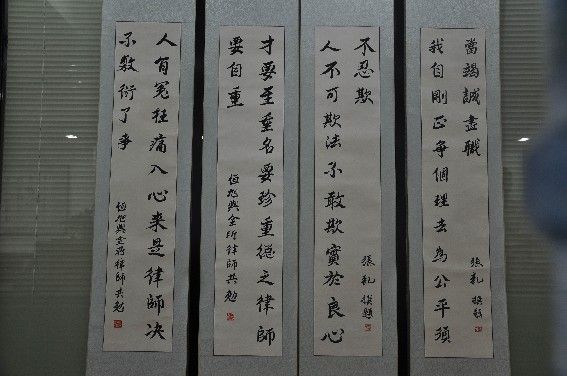 人有冤枉痛入心来是律師决
不敷衍了事
恆旭與全所律師共勉
才要至重名要珍重德之律師
要自重
恆旭與全所律師共勉
人不可欺法不敢欺實於良心
不忍欺
張 撰題
我自剛正爭個理去為公平須
當竭誠盡職
張 撰題